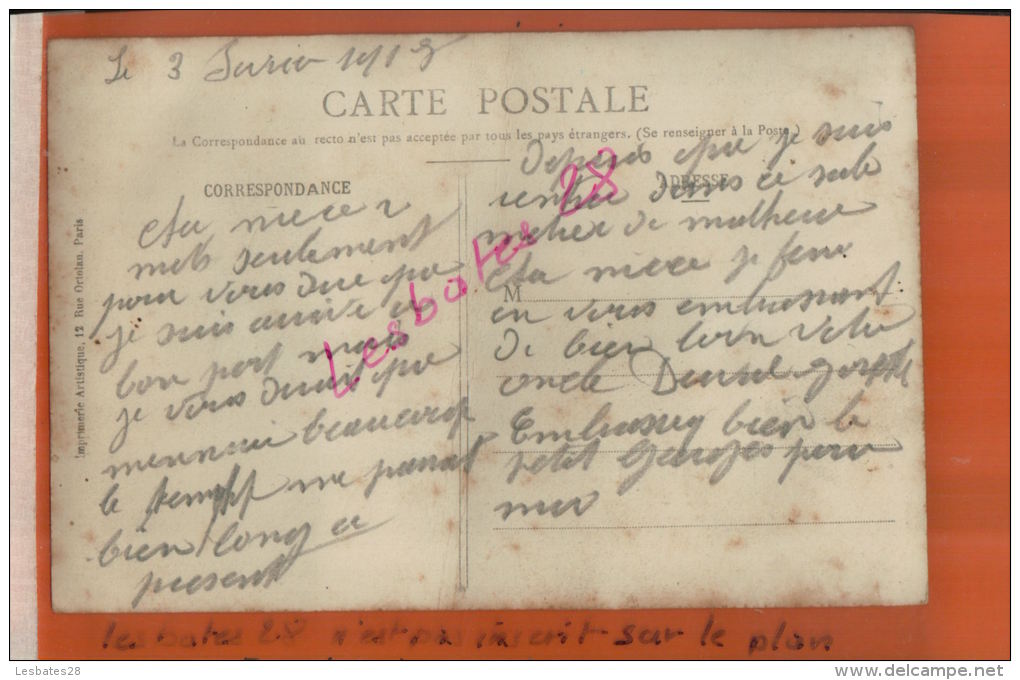 Le 3 1918
CARTE POSTALE
La Correspondance au recto n'est pas acceptée par tous les pays étrangers. (Se renseigner à la Poste.)
CORRESPONDANCE
ADRESSE
Imprimerie Artistique, 12 Rue Ortolan. Paris
Cha niece 2
mots seulement
pour vous dire que
je suis arrivé a
bon port mais
je vous dirait que
mennuie beaucoup
le temp me parait
bien long a
present
Depuis que je suis
rentré dans ce sale
metier de malheur
Cha niece je fini
M
en vous embrassant
de bien loin votre
oncle
Embrassez bien le
petit Georges pour
moi
Lesbates 28
lesbates 28 n'est pas inscrit sur le plan
Lesbates28
www.delcampe.net